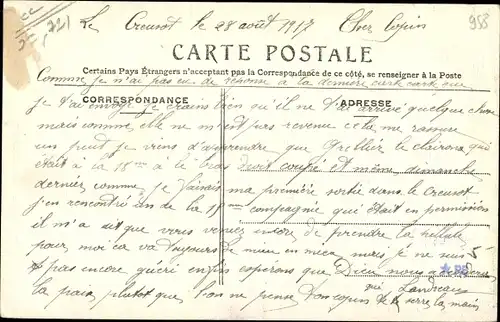 Le Creusot le 28 août 1917 Cher Copin
958
CARTE POSTALE
Certains Pays Étrangers n'acceptent pas la Correspondance de ce côté, se renseigner à la Poste
Comme je n'ai pas eu de réponse a la dernière carte que
CORRESPONDANCE
ADRESSE
je t'ai envoyé je crains bien qu'il ne t'ai arrivé quelque chose
mais comme elle ne m'est pas revenue cela me rassure
un peut je viens d'apprendre que Grellier le clairon qui
était a la 18me a le bras droit coupé et même dimanche
dernier comme je faisais ma première sortie dans le Creusot
j'en rencontré un de la 18me compagnie qui était en permission
il m'a dit que vous veniez encore de prendre la
pour moi ca va toujours de mieu en mieu mais je ne suis
pas encore guéri enfin espérons que Dieu nous
la paix plutot que l'on ne pense Ton copin qui te serre la main
Landreau